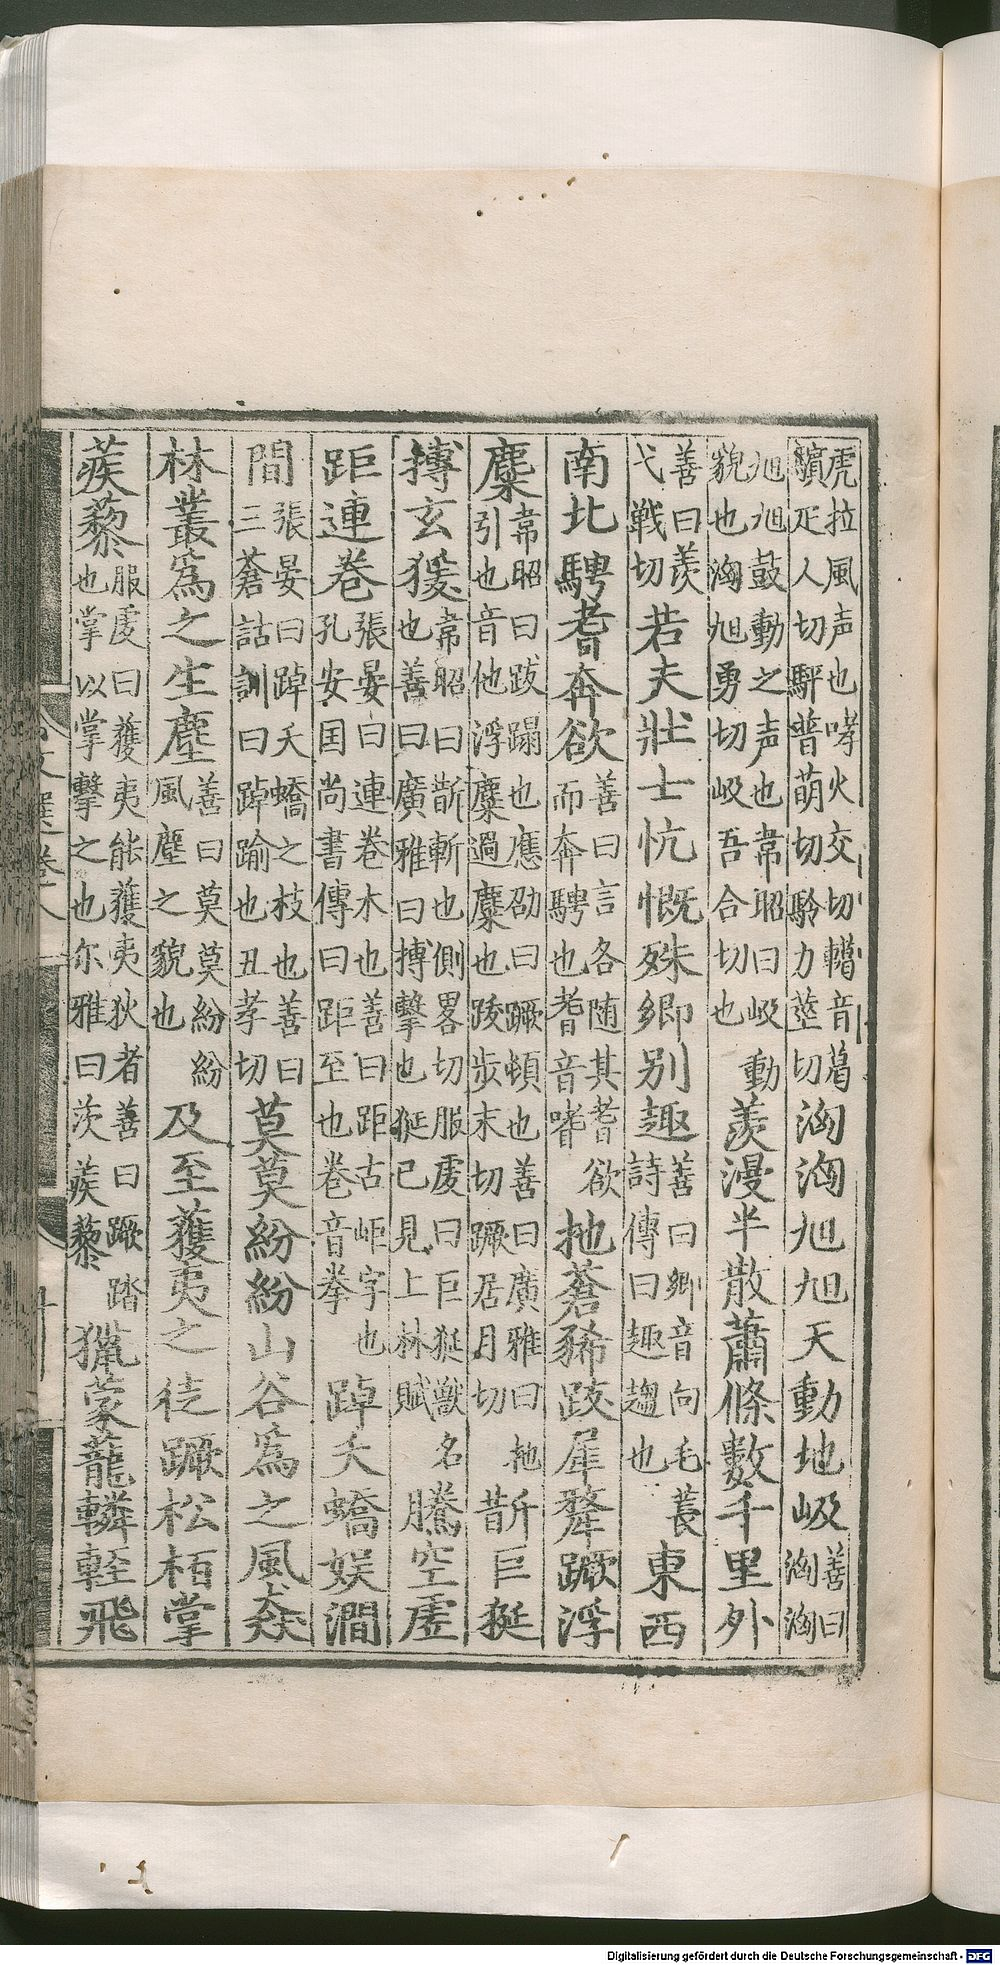 虎拉風声也哮火交切轕音葛驞疋人切駍普萌切駖力莖切洶洶旭旭天動地岋善曰洶洶
旭旭鼓動之声也韋昭曰岋動貌也洶旭勇切岋吾合切也羨漫半散蕭條數千里外
善曰羨弋戰切若夫壯士忼慨殊鄉别趣善曰鄉音向毛萇詩傳曰趣趨也東西
南北騁耆奔欲善曰言各随其耆欲而奔騁也耆音嗜扡蒼豨跋犀犛蹶浮
麋韋昭曰跋蹋也應劭曰蹶頓也善曰廣雅曰扡引也音他浮麋過麋也跋步末切蹶居月切斮巨狿
搏玄猨韋昭曰斮斬也側畧切服虔曰巨狿獸名也善曰廣雅曰搏擊也狿已見上林賦騰空虛
距連卷張晏曰連卷木也善曰距古岠字也孔安国尚書傳曰距至也卷音拳踔夭蟜娭澗
間張晏曰踔夭蟜之枝也善曰三蒼詁訓曰踔踰也丑孝切莫莫紛紛山谷為之風猋
林叢為之生塵善曰莫莫紛紛風塵之貌也及至獲夷之徒蹶松栢掌
蒺藜服虔曰獲夷能獲夷狄者善曰蹶踏也掌以掌擊之也尔雅曰茨蒺藜獵蒙蘢轔輕飛
Digitalisierung gefördert durch die Deutsche Forschungsgemeinschaft - DFG